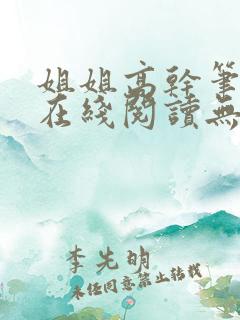 姐姐高幹筆
在綫閱讀無
李先明
未经同意禁止转载